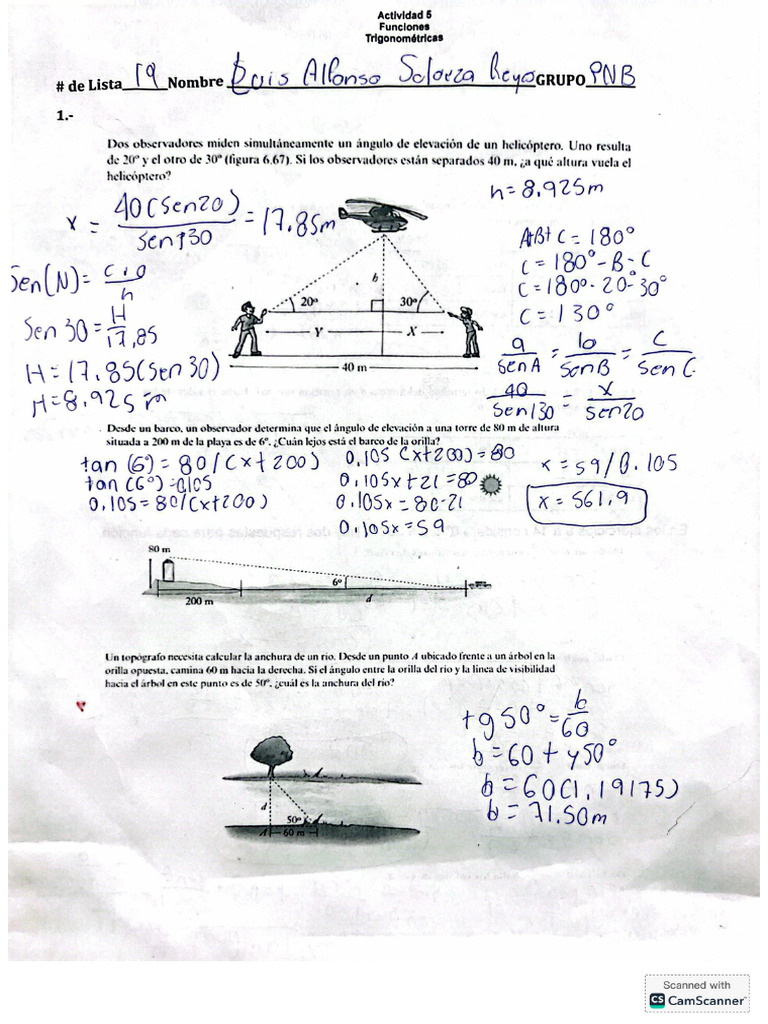 Actividad 5
Funciones
Trigonométricas
# de Lista 19 Nombre Luis Alfonso Solorza Reyo GRUPO PNB
1.-
Dos observadores miden simultáneamente un ángulo de elevación de un helicóptero. Uno resulta
de 20° y el otro de 30° (figura 6.67). Si los observadores están separados 40 m, ¿a qué altura vuela el
helicóptero?
h=8.925m
x = 40(Sen20) / Sen130 = 17.85m
Sen(N)= c.o / h
Sen 30 = H / 17,85
H=17.85(Sen 30)
H=8.925 m
A+B+C=180°
C=180°-B-C
C=180°-20°-30°
C=130°
a / SenA = b / SenB = c / Sen C
40 / Sen130 = x / Sen20
h
20°
30°
Y
X
40 m
Desde un barco, un observador determina que el ángulo de elevación a una torre de 80 m de altura
situada a 200 m de la playa es de 6°. ¿Cuán lejos está el barco de la orilla?
tan (6°)=80/(x+200)
tan(6°)=0,105
0.105=80/(x+200)
0.105(x+200)=80
0,105x+21=80
0,105x=80-21
0.105x=59
x=59/0.105
x=561.9
80 m
6°
200 m
d
Un topógrafo necesita calcular la anchura de un río. Desde un punto A ubicado frente a un árbol en la
orilla opuesta, camina 60 m hacia la derecha. Si el ángulo entre la orilla del río y la línea de visibilidad
hacia el árbol en este punto es de 50°, ¿cuál es la anchura del río?
tg50°=b/60
b=60+y50°
b=60(1,19175)
b=71.50m
d
50°
A
60 m
Scanned with
CS CamScanner